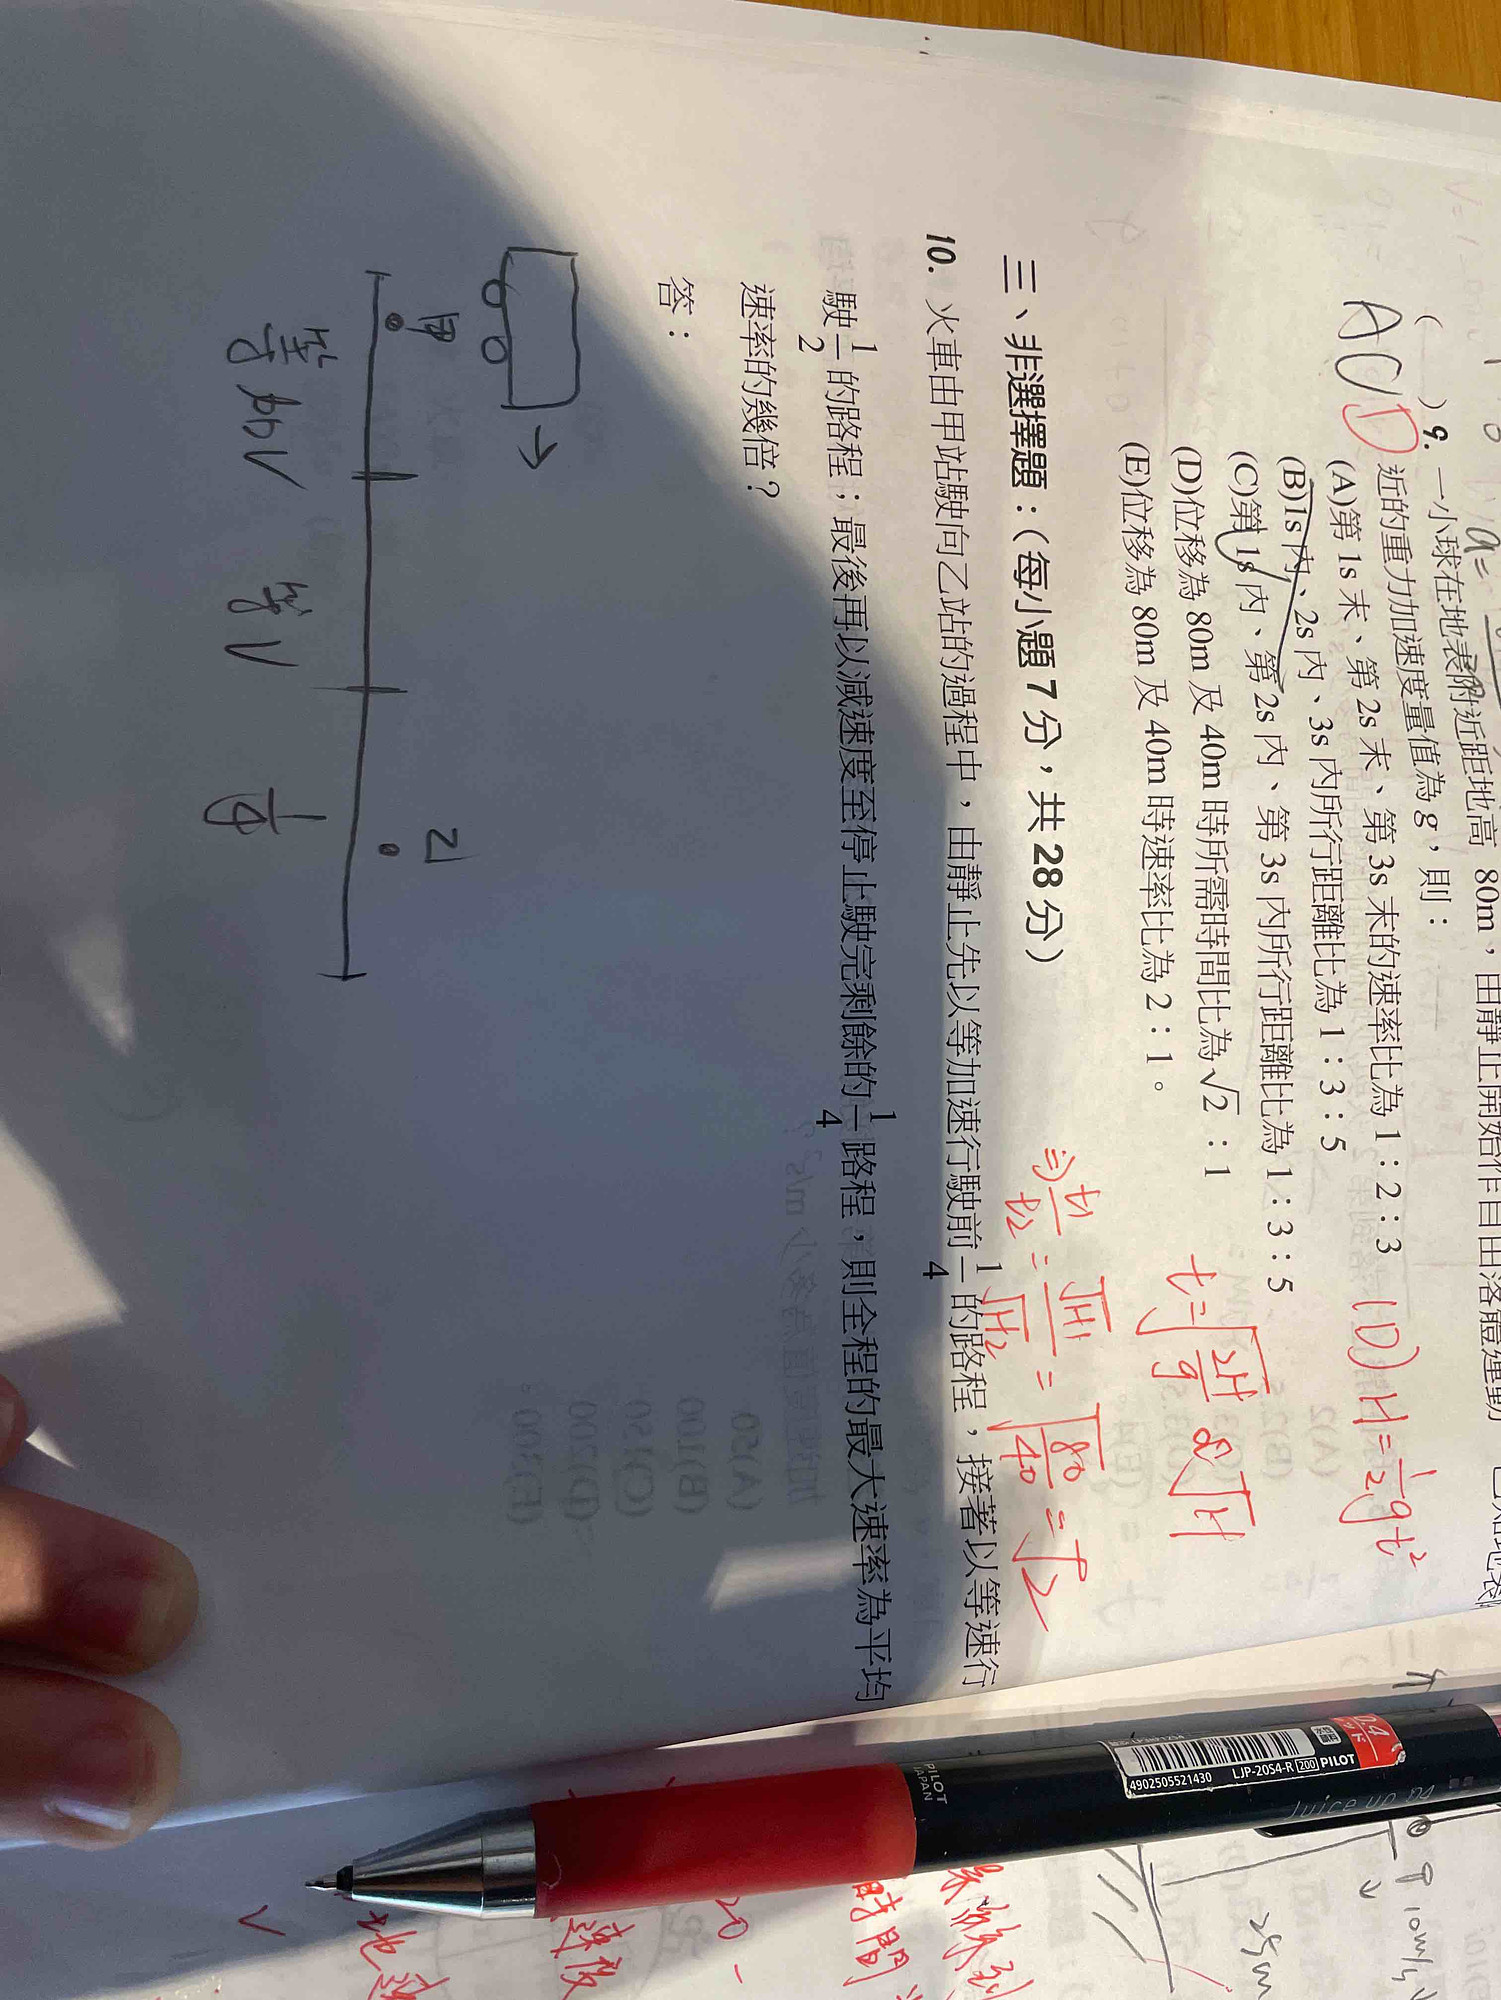 9. 一小球在地表附近距地高 80m,由靜止開始作自由落體運動
近的重力加速度量值為 g,則:
ACD
(A)第 1s 末、第 2s 末、第 3s 末的速率比為 1:2:3
(B)1s 內、2s 內、3s 內所行距離比為 1:3:5
(C)第 1s 內、第 2s 內、第 3s 內所行距離比為 1:3:5
(D)位移為 80m 及 40m 時所需時間比為 √2:1
(E)位移為 80m 及 40m 時速率比為 2:1。
(D) H=1/2gt²
t=√(2H/g) ∝√H
⇒ t1/t2 = √H1/√H2 = √(80/40) = √2
三、非選擇題:(每小題 7 分,共 28 分)
10. 火車由甲站駛向乙站的過程中,由靜止先以等加速行駛前 1/4 的路程,接著以等速行
駛 1/2 的路程;最後再以減速度至停止駛完剩餘的 1/4 路程,則全程的最大速率為平均
速率的幾倍?
答:
→
甲
乙
等加V
等V
PILOT
JAPAN
4902505521430
LJP-20S4-R 200 PILOT
0.4
Juice up 04
10m/s
25m
時間
20